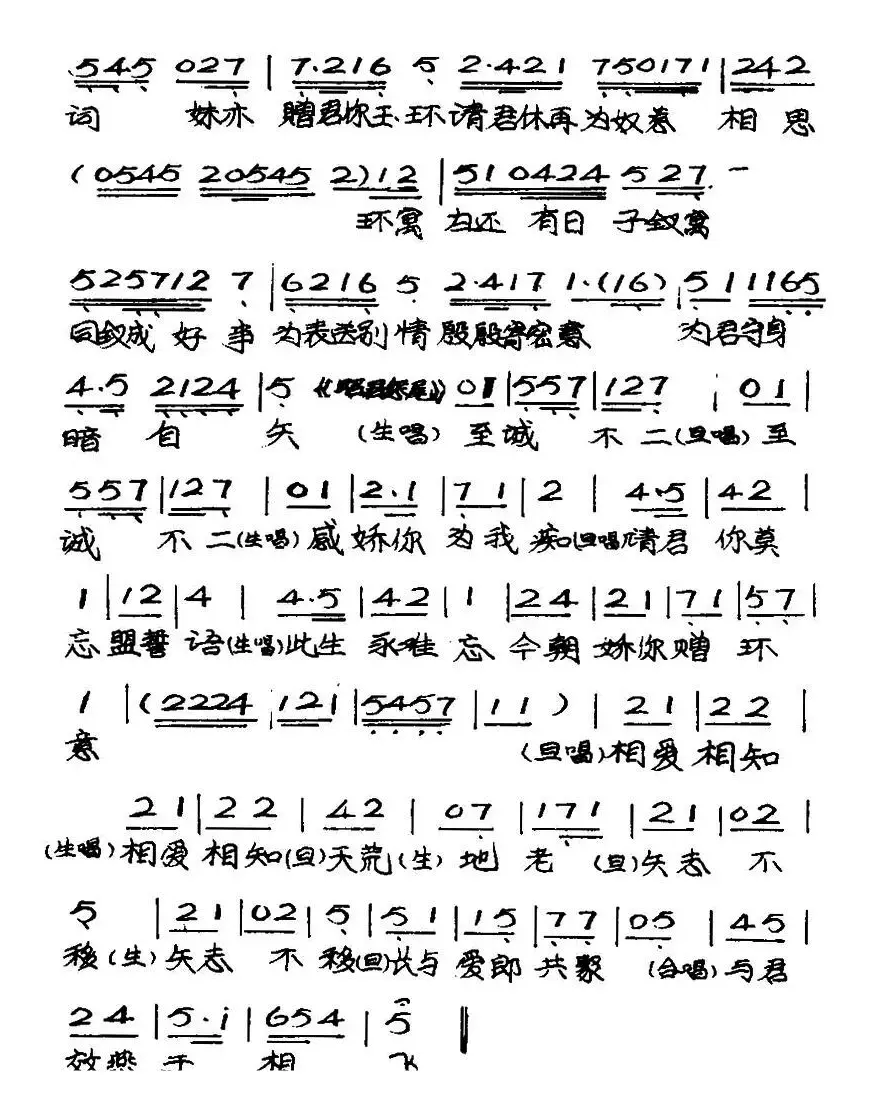 545 027 | 7·216 5 2·421 750171 | 242
词 妹亦 赠君你玉环请君休再为奴惹 相思
(0545 20545 2) 12 | 510424 527 -
环寓 为还 有日 子钗寓
525712 7 | 6216 5 2·417 1·(16) 511165
同钗成 好事 为表送别情殷殷寄宏意 为君守身
4·5 2124 | 5 01 | 557 | 127 | 01 |
暗自矢 (生唱) 至诚 不二(旦唱)至
557 | 127 | 01 | 2·1 | 71 | 2 | 4·5 | 42 |
诚 不二(生唱)感娇你为我痴(旦唱)请君你莫
1 | 12 | 4 | 4·5 | 42 | 1 | 24 | 21 | 71 | 57 |
忘盟誓语(生唱)此生永难忘今朝娇你赠环
1 | (2224 | 121 | 5457 | 11 ) | 21 | 22 |
意 (旦唱)相爱相知
21 | 22 | 42 | 07 | 171 | 21 | 02 |
(生唱)相爱相知(旦)天荒(生)地老 (旦)矢志不
5 | 21 | 02 | 5 | 51 | 15 | 77 | 05 | 45 |
移(生)矢志不移(旦)长与爱郎共聚 (合唱)与君
24 | 5·i | 654 | 5 ‖
效燕于相飞